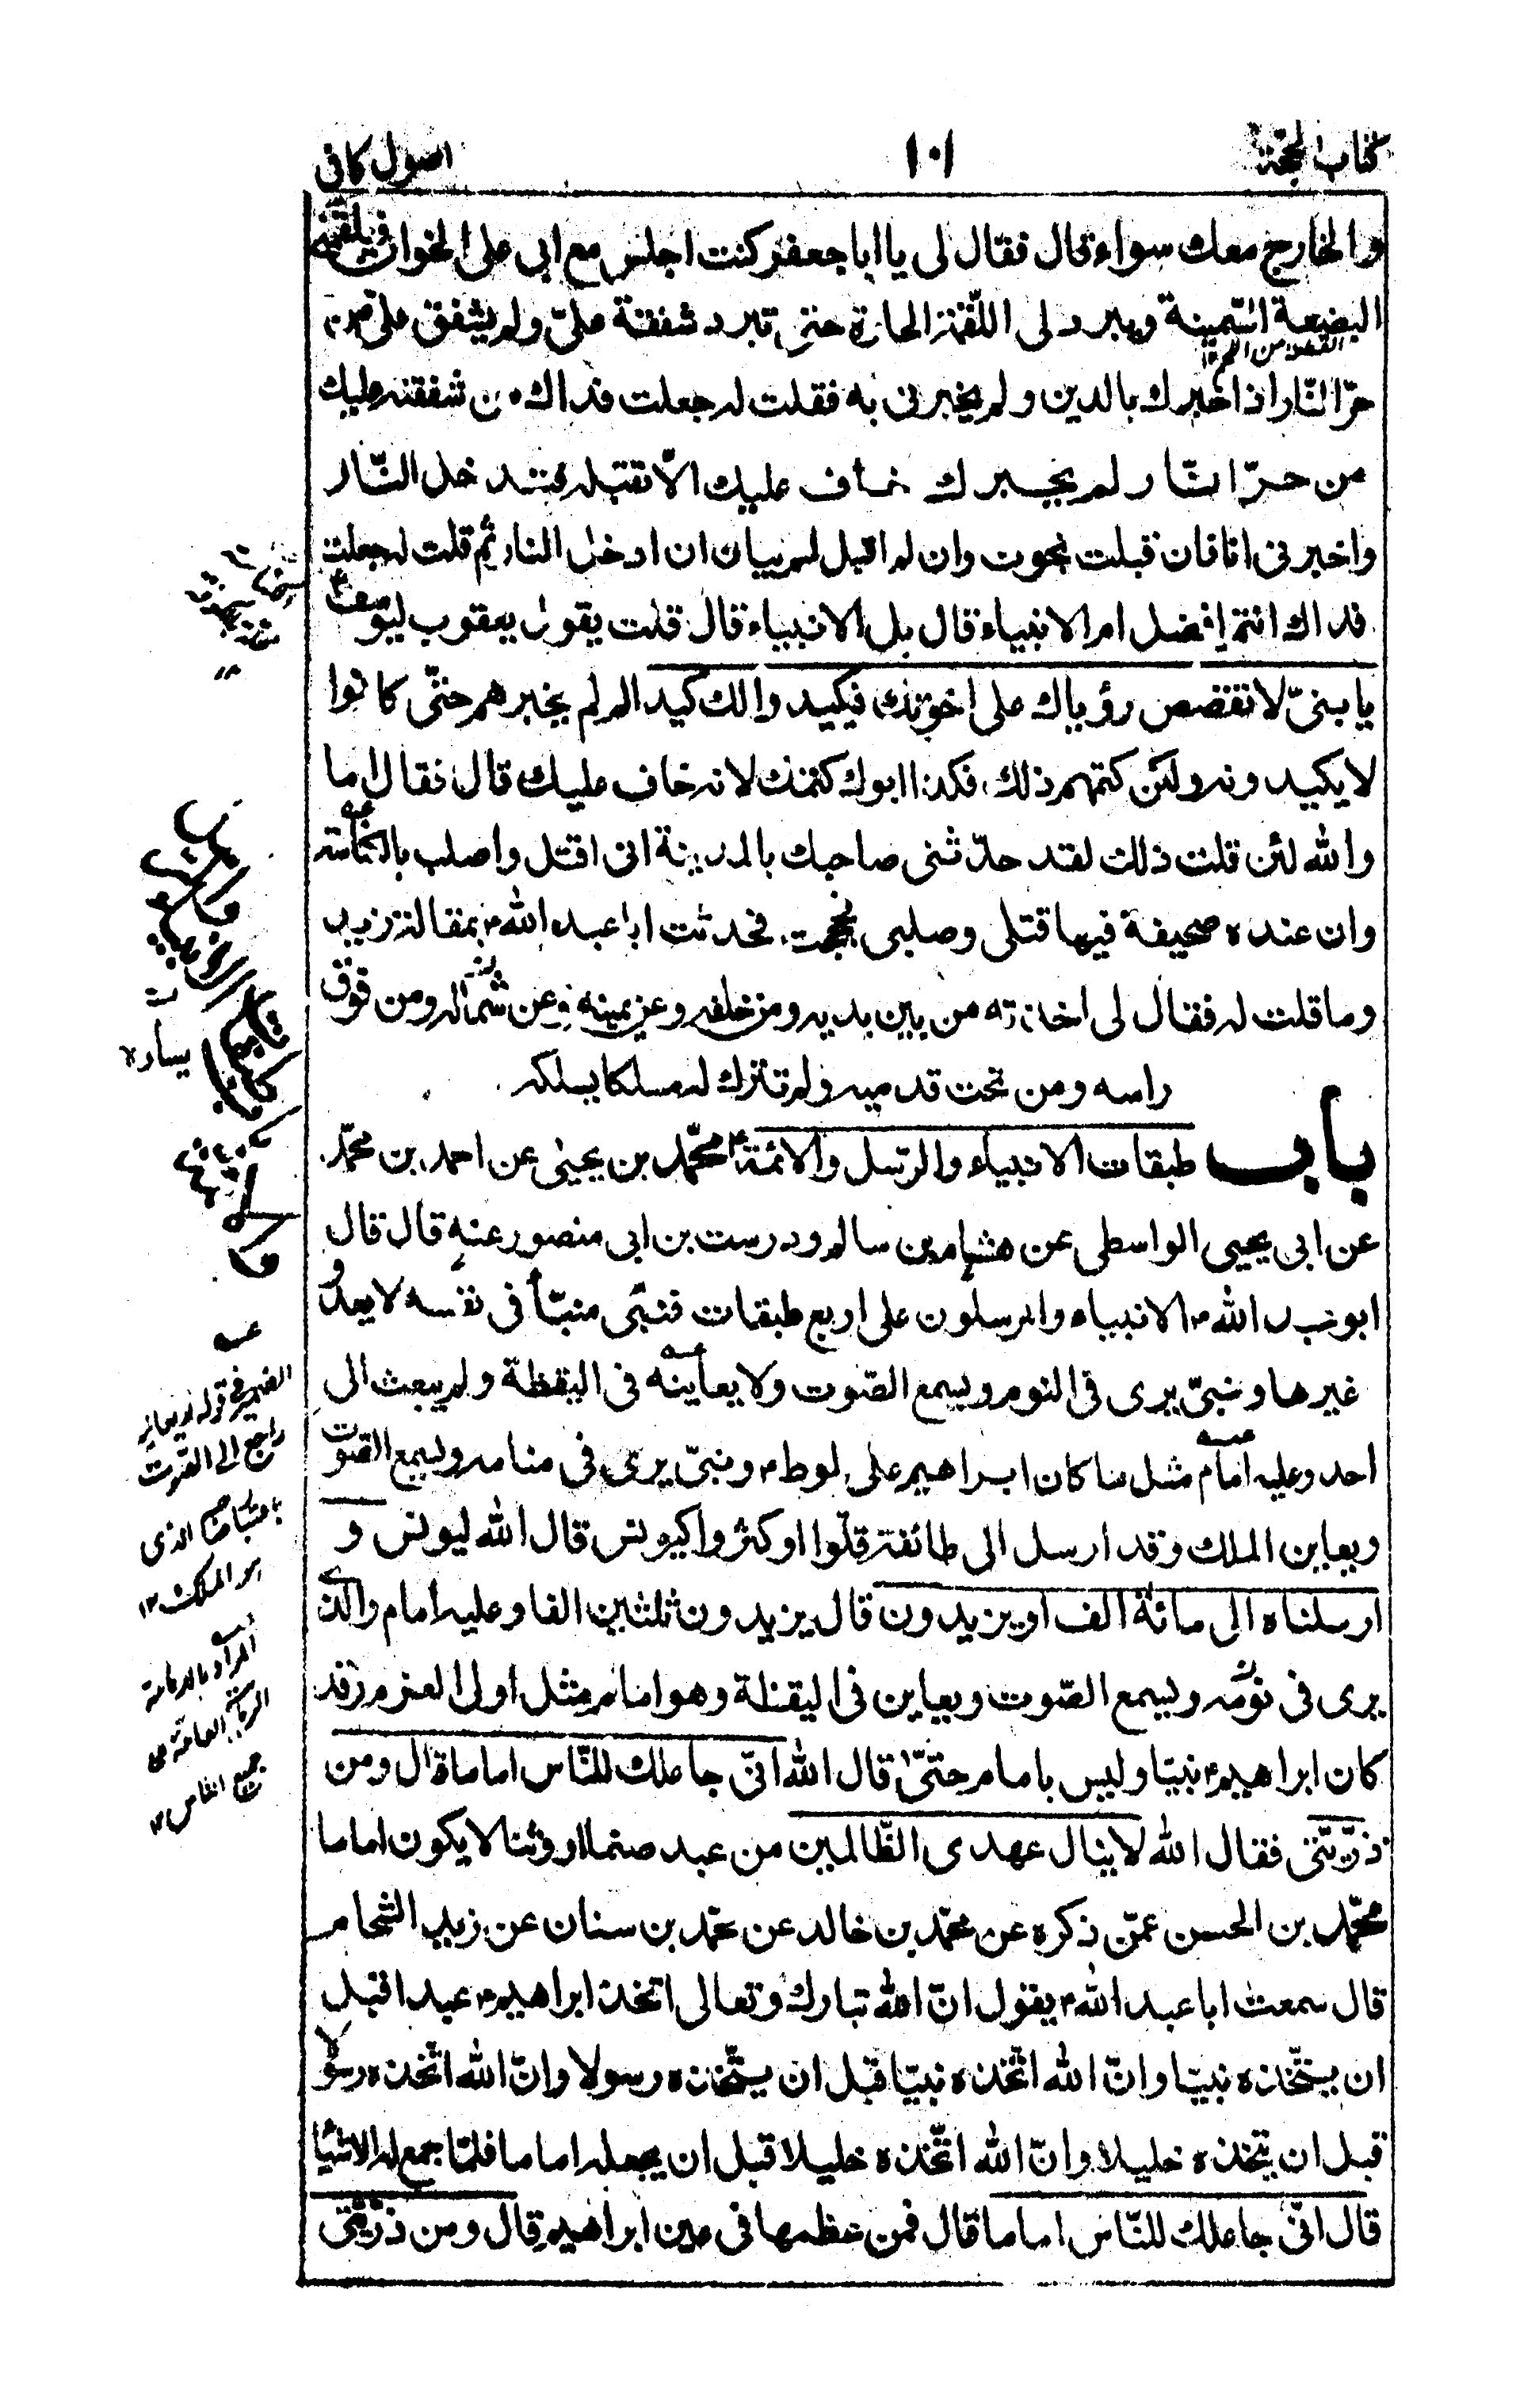 كتاب الحجة
١٠١
اصول كافى
والخارج معك سواء قال فقال لى يا ابا جعفر كنت اجلس مع ابى على الخوان فيلقمنى
البضعة السّمينة ويبرد لى اللّقمة الحارة حتى تبرد شفقة علىّ ولم يشفق علىّ من
القطعة من اللحم ١٢
حرّ النّار اذا اخبرك بالدين ولم يخبرنى به فقلت له جعلت فداك من شفقته عليك
من حرّ النّار لم يخبرك خاف عليك الّا تقبله فتدخل النّار
واخبرنى انا فان قبلت نجوت وان لم اقبل لم يبال ان ادخل النار ثم قلت له جعلت
فداك انتم افضل ام الانبياء قال بل الانبياء قال قلت يقول يعقوب ليوسف ع
يا بنىّ لا تقصص رؤياك على اخوتك فيكيدوا لك كيدا لم لم يخبرهم حتّى كانوا
لا يكيدونه ولكن كتمهم ذلك فكذا ابوك كتمك لانه خاف عليك قال فقال اما
والله لئن قلت ذلك لقد حدّثنى صاحبك بالمدينة انى اقتل واصلب بالكناسة
وان عنده صحيفة فيها قتلى وصلبى فحججت فحدثت ابا عبد الله ع بمقالة زيد
وما قلت له فقال لى اخذته من بين يديه ومن خلفه وعن يمينه وعن شماله ومن فوق
راسه ومن تحت قدميه ولم تترك له مسلكا يسلكه
باب طبقات الانبياء والرّسل والائمة ع محمّد بن يحيى عن احمد بن محمّد
عن ابى يحيى الواسطى عن هشام بن سالم ودرست بن ابى منصور عنه قال قال
ابو عبد الله ع الانبياء والمرسلون على اربع طبقات فنبّى منبّأ فى نفسه لا يعدو
غيرها ونبىّ يرى فى النوم ويسمع الصّوت ولا يعاينه فى اليقظة ولم يبعث الى
احد وعليه امام مثل ما كان ابراهيم على لوط ع ونبىّ يرى فى منامه ويسمع الصّوت
ويعاين الملك وقد ارسل الى طائفة قلّوا او كثروا كيونس قال الله ليونس و
ارسلناه الى مائة الف او يزيدون قال يزيدون ثلثين الفا وعليه امام والذى
يرى فى نومه ويسمع الصّوت ويعاين فى اليقظة وهو امام مثل اولى العزم وقد
كان ابراهيم ع نبيّا وليس بامام حتّى قال الله انّى جاعلك للنّاس اماما قال ومن
ذرّيّتى فقال الله لا ينال عهدى الظّالمين من عبد صنما او وثنا لا يكون اماما
محمّد بن الحسن عمّن ذكره عن محمّد بن خالد عن محمّد بن سنان عن زيد الشحام
قال سمعت ابا عبد الله ع يقول انّ الله تبارك وتعالى اتخذ ابراهيم ع عبدا قبل
ان يتّخذه نبيّا وانّ الله اتّخذه نبيّا قبل ان يتّخذه رسولا وانّ الله اتّخذه رسولا
قبل ان يتخذه خليلا وانّ الله اتّخذه خليلا قبل ان يجعله اماما فلمّا جمع له الاشيا
قال انّى جاعلك للنّاس اماما قال فمن عظمها فى عين ابراهيم قال ومن ذرّيّتى
يساره
الضمير فى قوله لا يعاينه
راجع الى الصوت
باعتبار صاحبه الذى
هو الملك ١٢
المراد بالامامة
الرياسة العامة على
جميع الناس ١٢